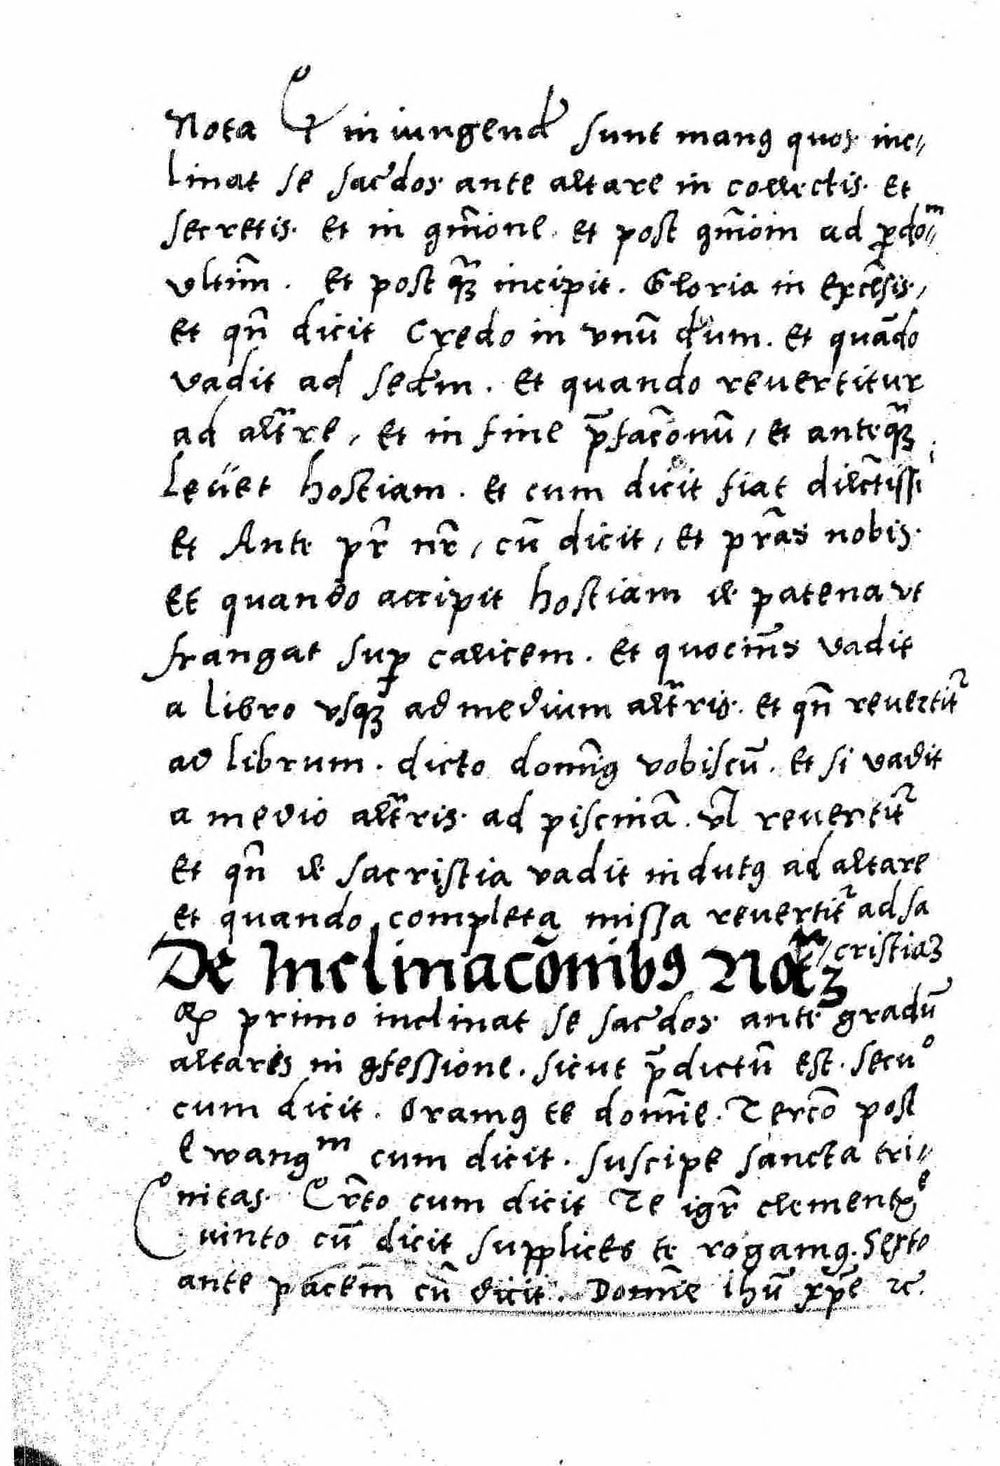 Nota ꝙ in iungend sunt manꝰ quos inc-
linat se sac̄dos ante altare in collectis. Et
secretis. et in ꝯm̄ione. et post ꝯm̄ioin ad ꝑdo-m
vltim̄. Et post qᷓꝫ incipit. Gloria in Exc̄lsis,
Et qn̄ dicit Credo in vnū dūm. Et quādo
vadit ad sed̄m. Et quando reuertitur
ad alt̄re, Et in fine p̄fac̄onū, Et anteqᷓꝫ
leuet hostiam. Et cum dicit fiat dilc̄tissi
Et Ante pr̄ nr̄, cū dicit, Et pr̄as nobis.
Et quando accipit hostiam de patena vt
frangat suꝑ calicem. Et quociēs vadit
a libro vsqꝫ ad medium alt̄ris. Et qn̄ reuertit᷑
ad librum. dicto domīꝰ vobiscū. Et si vadit
a medio alt̄ris ad piscinā. vl̄ reuertit᷑
Et qn̄ de sacristia vadit indutꝰ ad altare
et quando completa missa reuertit᷑ ad sa
cristiaꝫ
De Inclinac̄onibꝰ Notᷓꝫ
ꝙ primo inclinat se sac̄dos ante gradū
altaris in ꝯfessione. sicut p̄dictū est. secuº
cum dicit. Oramꝰ te domīe. Terc̄o post
Ewangᵐ cum dicit. suscipe sancta tri-
nitas. Qr̄to cum dicit Te igr̄ clement
Quinto cū dicit supplices te rogamꝰ. Sexto
ante pacem̄ cū dicit. Domīe ihū xp̄e ⁊c̄.